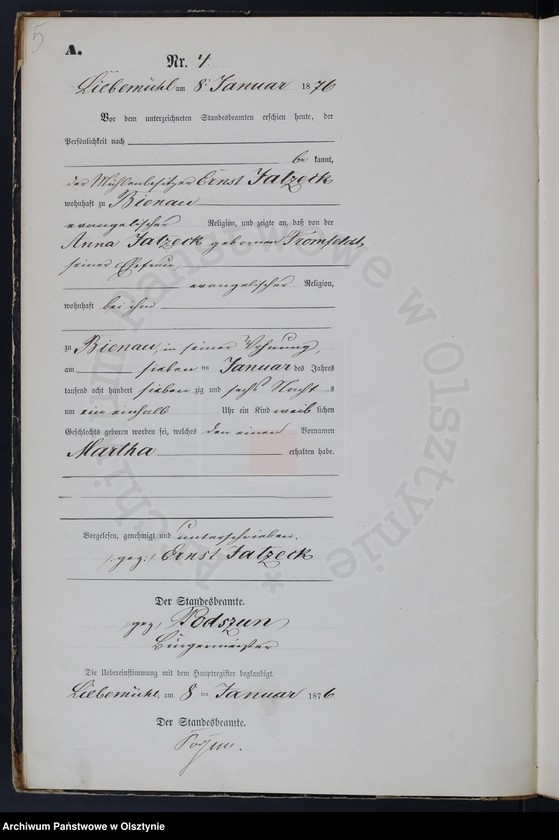 5
A.
Nr. 4.
Liebemühl am 8. Januar 1876
Vor dem unterzeichneten Standesbeamten erschien heute, der
Persönlichkeit nach
be kannt,
der Mühlenbesitzer Ernst Jatzeck
wohnhaft zu Bienau
evangelischer Religion, und zeigte an, daß von der
Anna Jatzeck geborenen
seiner Ehefrau
evangelischer Religion,
wohnhaft bei ihm
zu Bienau, in seiner Wohnung,
am sieben ten Januar des Jahres
tausend acht hundert sieben zig und sechs Nacht s
um ein einhalb Uhr ein Kind weib lichen
Geschlechts geboren worden sei, welches den einen Vornamen
Martha erhalten habe.
Vorgelesen, genehmigt und unterschrieben.
gez: Ernst Jatzeck
Der Standesbeamte.
gez, Podszun
Bürgermeister
Die Uebereinstimmung mit dem Hauptregister beglaubigt.
Liebemühl, am 8 ten Januar 1876
Der Standesbeamte.
Archiwum Państwowe w Olsztynie
Archiwum Państwowe w Olsztynie